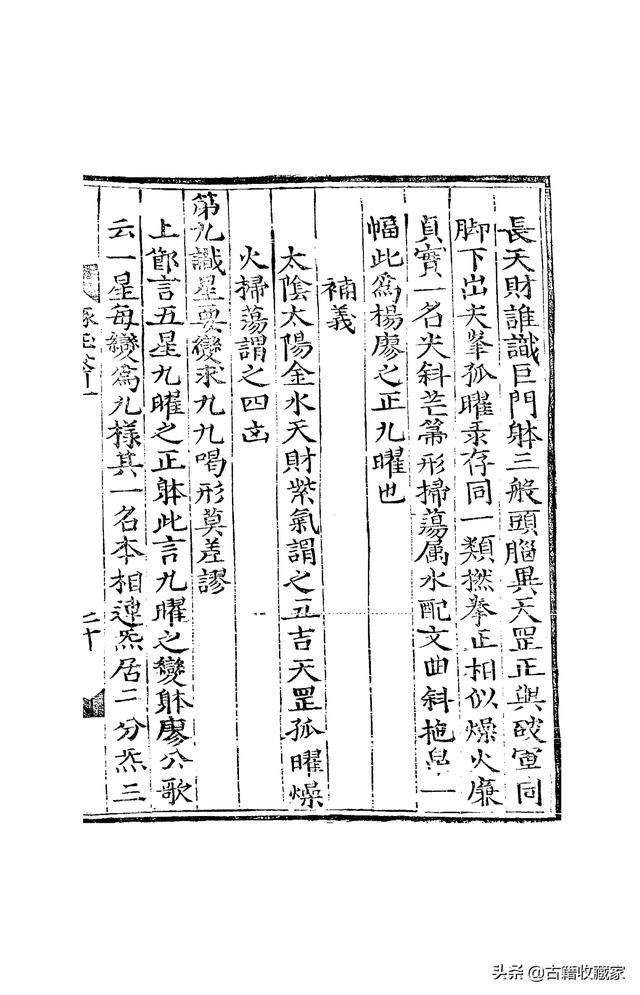 長天財誰識巨門躰三般頭腦異天罡正與破軍同
脚下出尖峯孤曜汞存同一類撚拳正相似燥火廉
貞實一名尖斜芒箒形掃蕩属水配文曲斜拖帛一
幅此爲楊廖之正九曜也
補義
太隂太陽金水天財紫氣謂之五吉天罡孤曜燥
火掃蕩謂之四凶
第九識星要變求九九喝形莫差謬
上節言五星九曜之正躰此言九曜之變躰廖公歌
云一星每變爲九樣其一名本相連炁居二分炁三
二十
头条@古籍收藏家